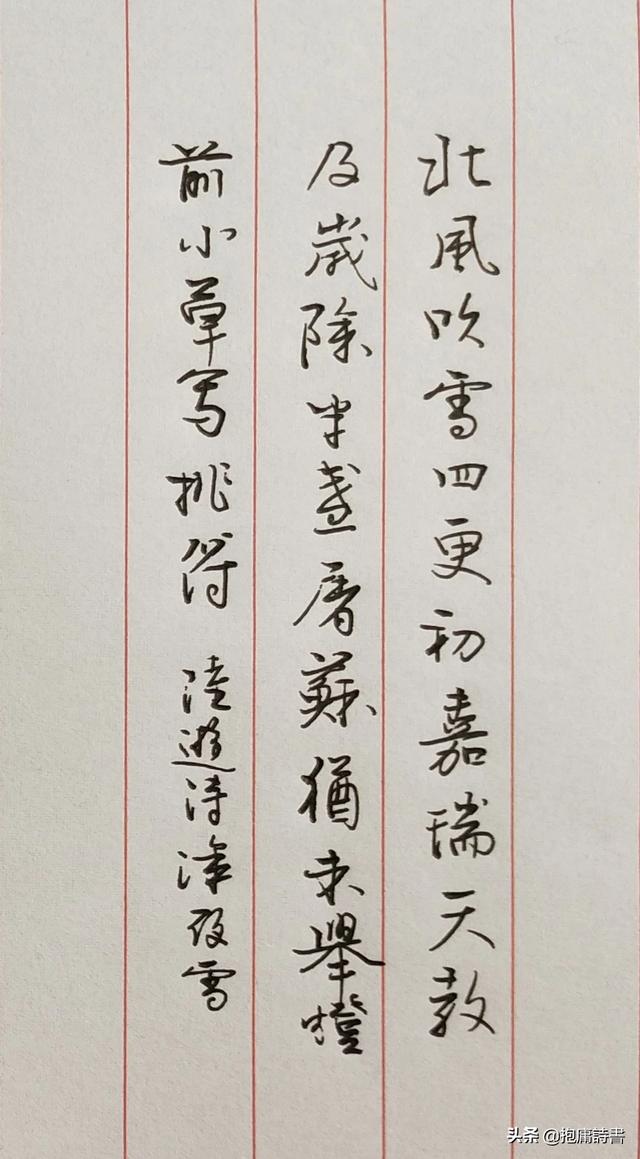 北風吹雪四更初嘉瑞天教
及歲除半盞屠蘇猶未舉燈
前小草寫桃符 陸遊詩除夜雪
头条 @抱庸詩書